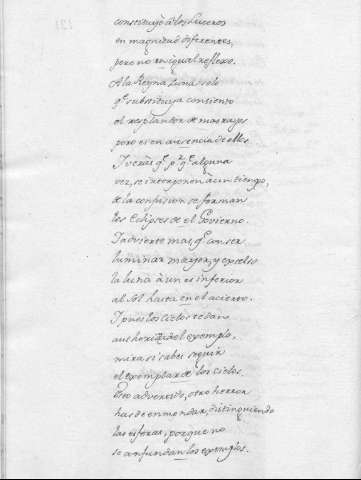 constituyò à los Luceros
en magnitud diferentes,
pero no en igual reflexo.
A la Reyna Luna solo
q.e substituya consiento
el resplandor de mas rayos
pero es en ausencia de ellos
I veràs q.e p.r q.e alguna
vez, se interponen à un tiempo,
de la confusion se forman
los Eclipses de el Govierno.
I advierte mas, q.e an ser
luminar mayor, y excelso
la luna à un es inferior
al Sol hasta en el acierto.
I pues los Cielos te dan
authoridad el exemplo,
mira si sabes seguir
el exemplar de los Cielos.
Esto advertido, otro herror
has de enmendar, distinguiendo
las esferas, porque no
se confundan los exemplos.